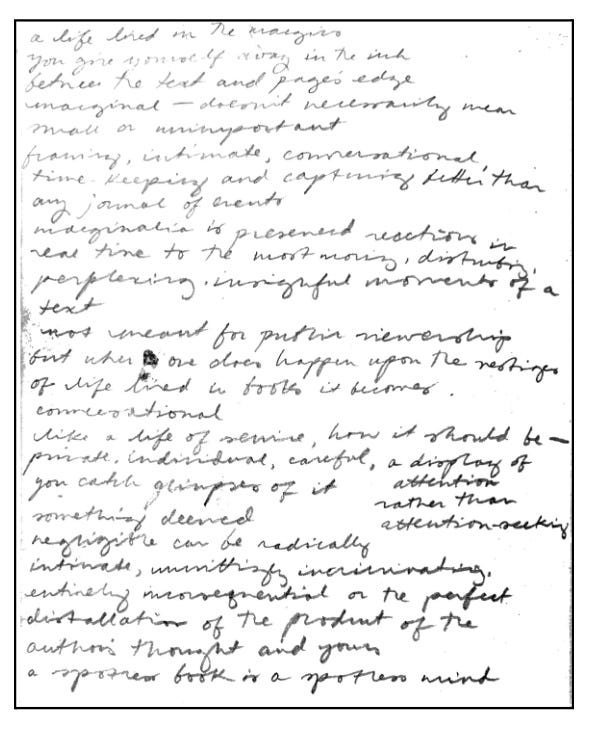 a life lived in the margins
you give yourself away in the ink
between the text and page's edge
marginal — doesn't necessarily mean
small or unimportant
framing, intimate, conversational,
time-keeping and capturing better than
any journal of events
marginalia is preserved reactions in
real time to the most moving, disturbing,
perplexing, insightful moments of a
text
not meant for public viewership
but when one does happen upon the vestiges
of life lived in books it becomes
conversational
like a life of service, how it should be —
private, individual, careful, a display of
attention
rather than
attention-seeking
you catch glimpses of it
something deemed
negligible can be radically
intimate, unwittingly incriminating,
entirely inconsequential or the perfect
distallation of the product of the
author's thought and yours
a spotless book is a spotless mind